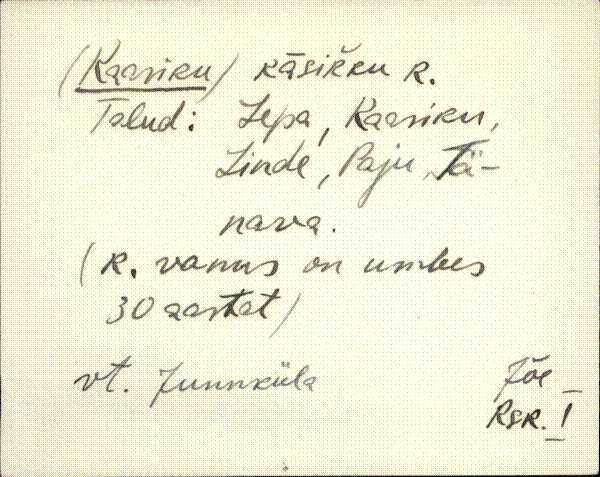 (Kaasiku) kāsikku R.
Talud: Lepa, Kaasiku,
Linde, Paju, Tä-
nava.
(R. vanus on umbes
30 aastat)
vt. Junnküla
Jõe
RSR. I